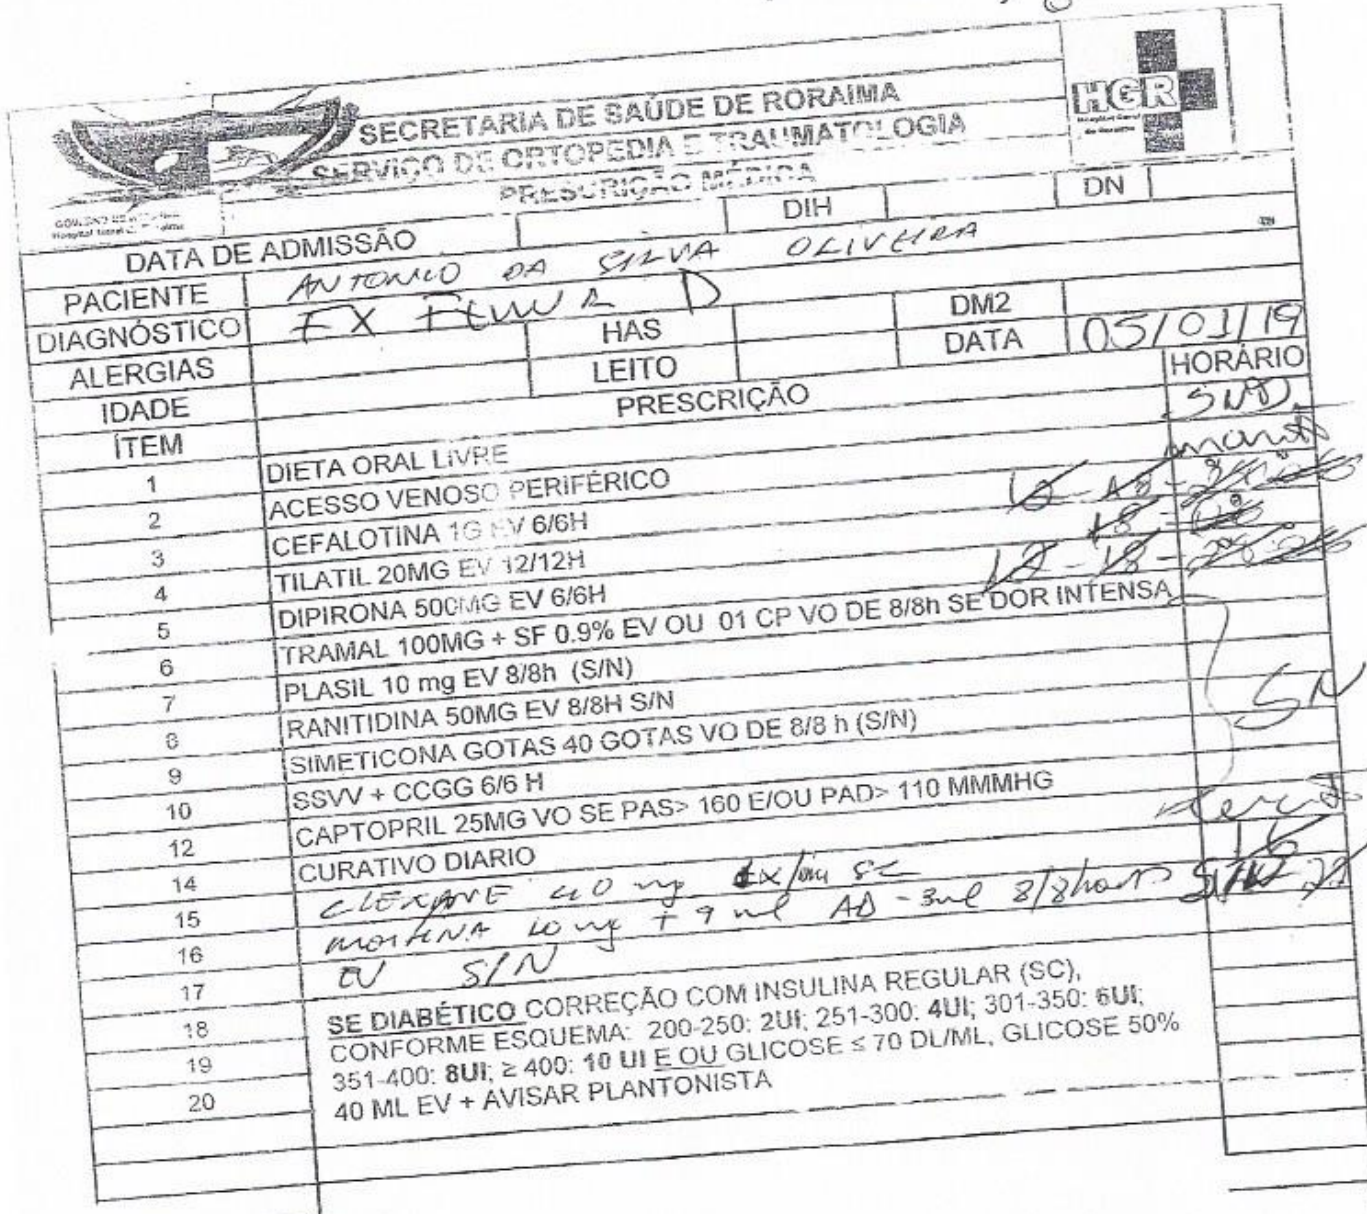 SECRETARIA DE SAÚDE DE RORAIMA
HGR
Hospital Geral
de Roraima
SERVIÇO DE ORTOPEDIA E TRAUMATOLOGIA
PRESCRIÇÃO MÉDICA
DATA DE ADMISSÃO DIH DN
PACIENTE ANTONIO DA SILVA OLIVEIRA
DIAGNÓSTICO FX FEMUR D
ALERGIAS HAS DM2
IDADE LEITO DATA 05/01/19
ÍTEM PRESCRIÇÃO HORÁRIO
1 DIETA ORAL LIVRE SND
2 ACESSO VENOSO PERIFÉRICO
3 CEFALOTINA 1G EV 6/6H 12 - 18 - 24
4 TILATIL 20MG EV 12/12H 18 - 06
5 DIPIRONA 500MG EV 6/6H 12 - 18 - 24
6 TRAMAL 100MG + SF 0.9% EV OU 01 CP VO DE 8/8h SE DOR INTENSA
7 PLASIL 10 mg EV 8/8h (S/N)
8 RANITIDINA 50MG EV 8/8H S/N SN
9 SIMETICONA GOTAS 40 GOTAS VO DE 8/8 h (S/N)
10 SSVV + CCGG 6/6 H
12 CAPTOPRIL 25MG VO SE PAS> 160 E/OU PAD> 110 MMMHG
14 CURATIVO DIARIO
15 CLEXANE 40 mg SC 16
16 MORFINA 10 mg + 9 ml AD - 3ml 8/8horas
17 EV S/N
18 SE DIABÉTICO CORREÇÃO COM INSULINA REGULAR (SC),
19 CONFORME ESQUEMA: 200-250: 2UI; 251-300: 4UI; 301-350: 6UI;
20 351-400: 8UI; ≥ 400: 10 UI E OU GLICOSE ≤ 70 DL/ML, GLICOSE 50%
40 ML EV + AVISAR PLANTONISTA